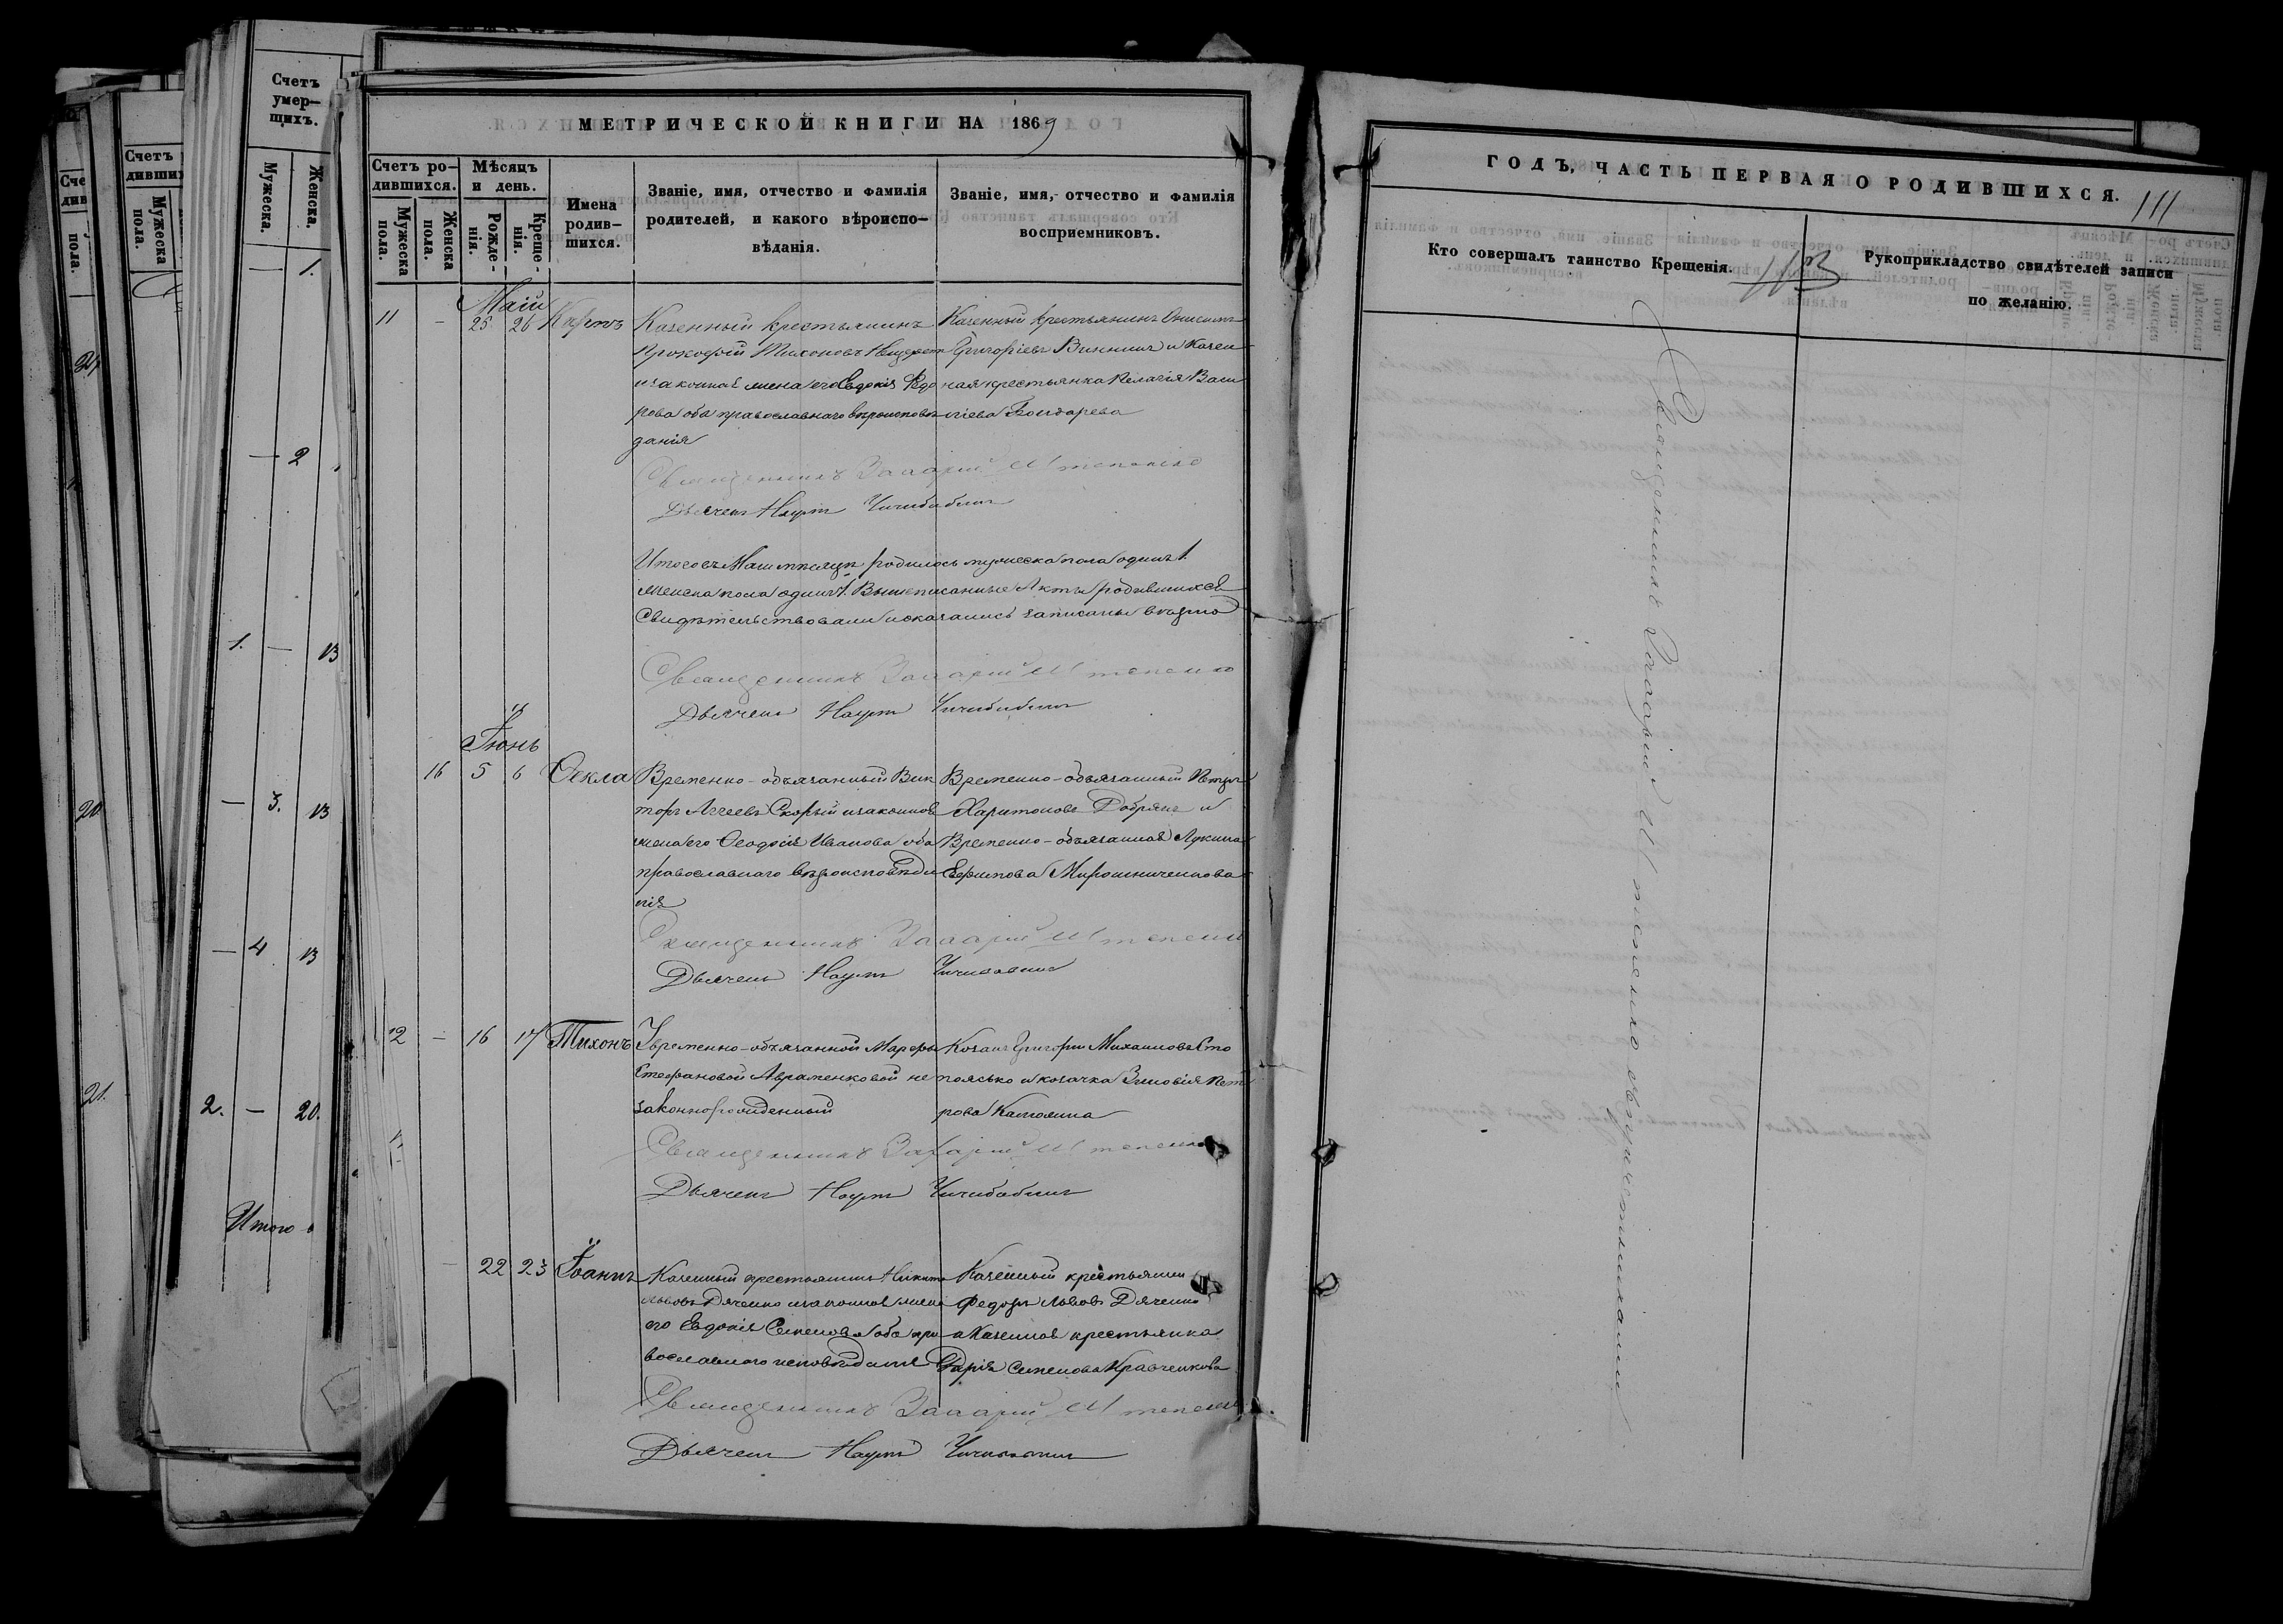 МЕТРИЧЕСКОЙ КНИГИ НА 1869
Счетъ ро-
дившихся.
Мѣсяцъ
и день.
Мужеска
пола.
Женска
пола.
Рожде-
нія.
Креще-
нія.
Имена
родив-
шихся.
Званіе, имя, отчество и фамилія
родителей, и какого вѣроиспо-
вѣданія.
Званіе, имя, отчество и фамилія
восприемниковъ.
Май
11 - 25 26 Карпъ
Казенный крестьянинъ
Прокофій Тихоновъ
и законная жена его Евдокія Федо
рова оба православнаго вѣроиспове
данія
Казенный крестьянинъ Онисимъ
Григоріевъ Винникъ и казен
ная крестьянка Пелагія Васи
ліева Бондарева
Священникъ Захарій Штепенко
Дьячекъ Наумъ Чичибабинъ
Итого въ Маи месяце родилось мужеска пола одинъ 1.
женска пола одинъ 1. Вышеписанные Акты родившихся
Свидѣтельствовали и оказались записаны верно
Священникъ Захарій Штепенко
Дьячекъ Наумъ Чичибабинъ
Іюнь
16 5 6 Ѳекла
Временно-обязанный Вик
торъ Агеевъ Скорый и законная
жена его Ѳеодосія Иванова оба
православнаго вѣроисповѣда
нія
Временно-обязанный Петръ
Харитоновъ Добрякъ и
Временно-обязанная Лукина
Ефимова Мирошниченкова
Священникъ Захарій Штепенко
Дьячекъ Наумъ Чичибабинъ
12 - 16 17 Тихонъ
У временно-обязанной Марфы
Стефановой Авраменковой не
законнорожденный
Козакъ Григорій Михаиловъ Сто
поясько и козачка Зиновія Пет
рова Калюжна
Священникъ Захарій Штепенко
Дьячекъ Наумъ Чичибабинъ
- 22 23 Іоаннъ
Казенный крестьянинъ Никита
Львовъ Дяченко и законная жена
его Евдокія Семенова оба пра
вославнаго исповѣданія
Казенный крестьянин
Федоръ Львовъ Дяченко
и Казенная крестьянка
Дарія Семенова Кравченкова
Священникъ Захарій Штепенко
Дьячекъ Наумъ Чичибабинъ
ГОДЪ, ЧАСТЬ ПЕРВАЯ О РОДИВШИХСЯ.
111
Кто совершалъ таинство Крещенія.
113
Рукоприкладство свидѣтелей записи
по желанію.
Священникъ Захарій Штепенко
Счетъ
умер-
шихъ.
Мужеска.
Женска.
- 1.
- 2
1. - 13
- 3. 13
- 4 13
2. - 20.
Итого
Счетъ
дивших
Мужеска
пола.
Сче
див
пола.
20
21.